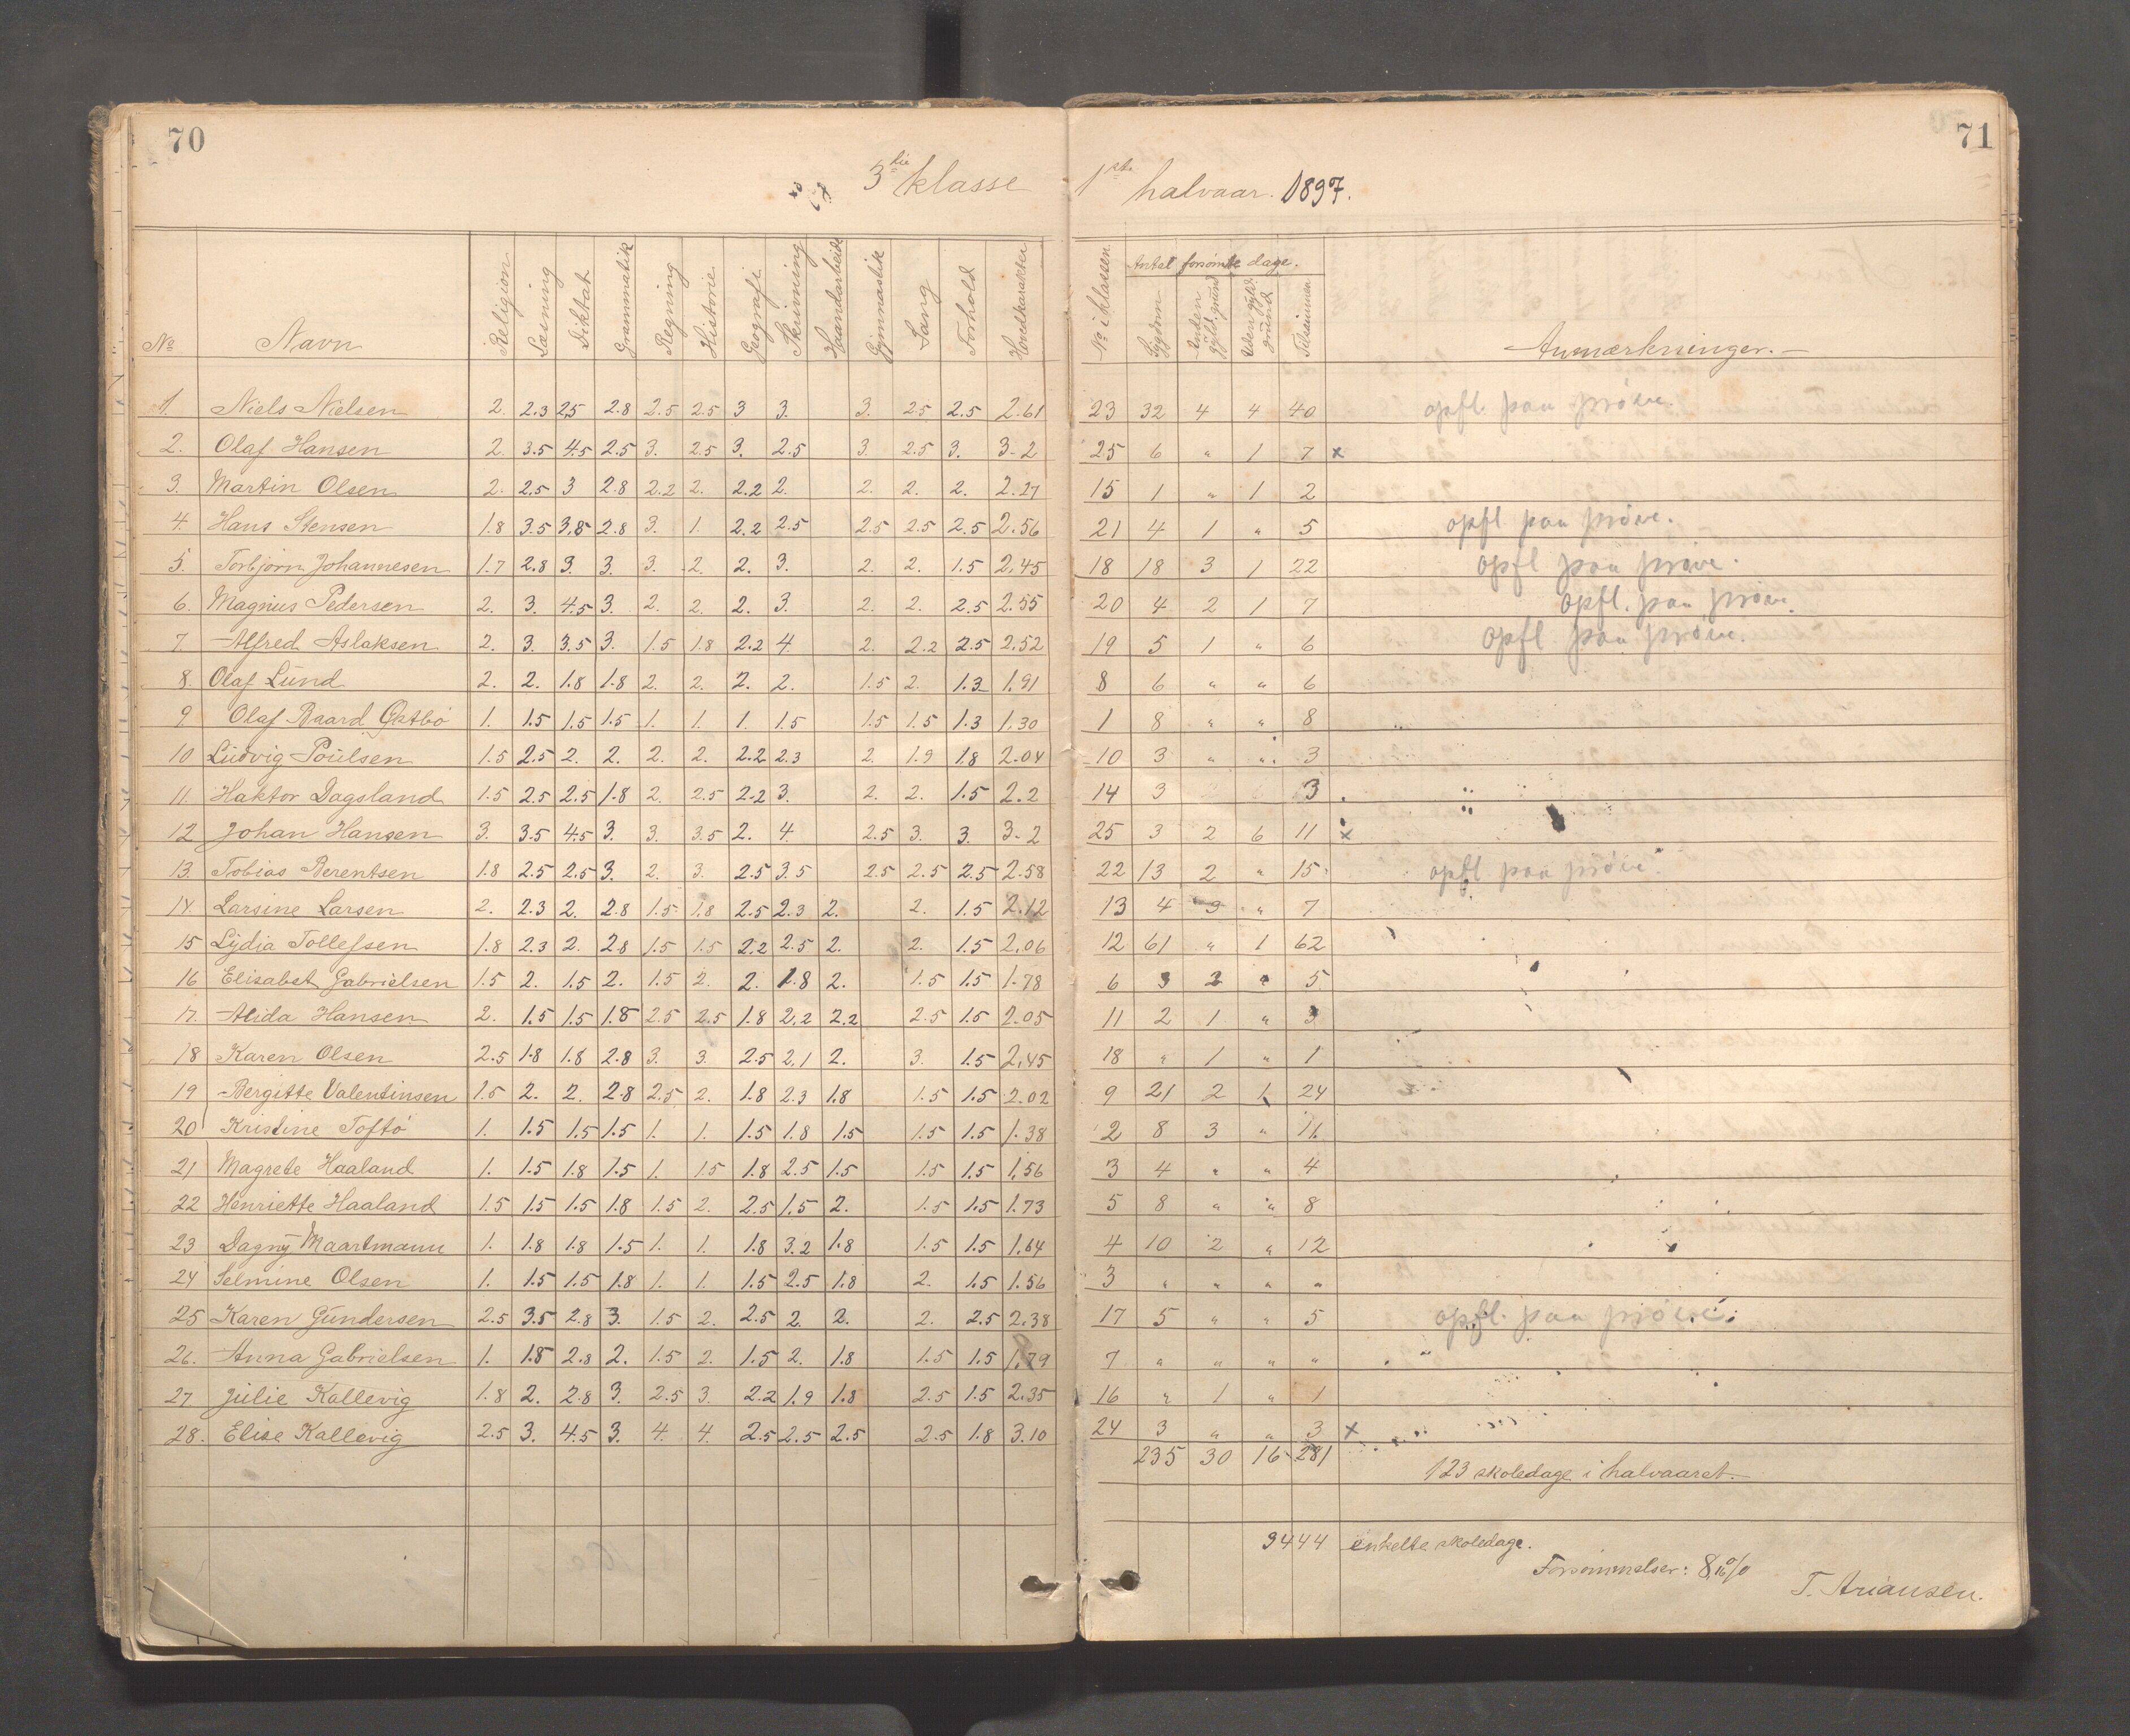 70
71
3die klasse 1ste halvaar. 1897.
No Navn Religion Læsning Diktat Grammatik Regning Historie Geografi Skrivning Haandarbeide Gymnastik Sang Forhold Hovedkarakter No i klassen. Antal forsømte dage. Sygdom Anden gyld. grund Uden gyld. grund Tilsammen Anmærkninger.
1. Niels Nielsen 2. 2.3 2.5 2.8 2.5 2.5 3 3. 3. 2.5 2.5 2.61 23 32 4 4 40 opfl. paa prøve.
2. Olaf Hansen 2. 3.5 4.5 2.5 3. 2.5 3. 2.5 3. 2.5 3. 3.2 25 6 " 1 7 x
3. Martin Olsen 2. 2.5 3 2.8 2.2 2. 2.2 2. 2. 2. 2. 2.27 15 1 " 1 2
4. Hans Stensen 1.8 3.5 3.8 2.8 3. 1. 2.2 2.5 2.5 2.5 2.5 2.56 21 4 1 " 5 opfl paa prøve.
5. Torbjørn Johannesen 1.7 2.8 3. 3. 3. 2. 2. 3. 2. 2. 1.5 2.45 18 18 3 1 22 opfl paa prøve.
6. Magnus Pedersen 2. 3. 4.5 3. 2. 2. 2. 3. 2. 2. 2.5 2.55 20 4 2 1 7 opfl. paa prøve.
7 Alfred Aslaksen 2. 3. 3.5 3. 1.5 1.8 2.2 4. 2. 2.2 2.5 2.52 19 5 1 " 6 opfl. paa prøve.
8. Olaf Lund 2. 2. 1.8 1.8 2. 2. 2. 2. 1.5 2. 1.3 1.91 8 6 " " 6
9 Olaf Baard Østbø 1. 1.5 1.5 1.5 1. 1. 1 1.5 1.5 1.5 1.3 1.30 1 8 " " 8
10 Ludvig Poulsen 1.5 2.5 2. 2. 2. 2. 2.2 2.3 2. 1.9 1.8 2.04 10 3 " " 3
11. Haktor Dagsland 1.5 2.5 2.5 1.8 2. 2.5 2.2 3. 2. 2. 1.5 2.2 14 3 3
12 Johan Hansen 3. 3.5 4.5 3. 3. 3.5 2. 4. 2.5 3. 3. 3.2 25 3 2 6 11 x
13. Tobias Berentsen 1.8 2.5 2.5 3. 2. 3. 2.5 3.5 2.5 2.5 2.5 2.58 22 13 2 " 15 opfl. paa prøve.
14. Larsine Larsen 2. 2.3 2. 2.8 1.5 1.8 2.5 2.3 2. 2. 1.5 2.12 13 4 3 " 7
15 Lydia Tollefsen 1.8 2.3 2. 2.8 1.5 1.5 2.2 2.5 2. 2. 1.5 2.06 12 61 " 1 62
16 Elisabet Gabrielsen 1.5 2. 1.5 2. 1.5 2. 2. 1.8 2. 1.5 1.5 1.78 6 3 2 " 5
17. Alida Hansen 2. 1.5 1.5 1.8 2.5 2.5 1.8 2.2 2.2 2.5 1.5 2.05 11 2 1 " 3
18 Karen Olsen 2.5 1.8 1.8 2.8 3. 3. 2.5 2.1 2. 3. 1.5 2.45 18 " 1 " 1
19 Bergitte Valentinsen 1.5 2. 2. 2.8 2.5 2. 1.8 2.3 1.8 1.5 1.5 2.02 9 21 2 1 24
20 Kristine Toftø 1. 1.5 1.5 1.5 1. 1. 1.5 1.8 1.5 1.5 1.5 1.38 2 8 3 " 11.
21 Magrete Haaland 1. 1.5 1.8 1.5 1. 1.5 1.8 2.5 1.5 1.5 1.5 1.56 3 4 " " 4
22 Henriette Haaland 1.5 1.5 1.5 1.8 1.5 2. 2.5 1.5 2. 1.5 1.5 1.73 5 8 " " 8
23 Dagny Maartmann 1. 1.8 1.8 1.5 1. 1. 1.8 3.2 1.8 1.5 1.5 1.64 4 10 2 " 12
24 Selmine Olsen 1. 1.5 1.5 1.8 1. 1. 1.5 2.5 1.8 2. 1.5 1.56 3 " " " "
25 Karen Gundersen 2.5 3.5 2.8 3. 1.5 2. 2.5 2. 2. 2. 2.5 2.38 17 5 " " 5 opfl. paa prøve.
26. Anna Gabrielsen 1. 1.8 2.8 2. 1.5 2. 1.5 2. 1.8 1.5 1.5 1.79 7 " " " "
27. Julie Kallevig 1.8 2. 2.8 3. 2.5 3. 2.2 1.9 1.8 2.5 1.5 2.35 16 " 1 " 1
28. Elise Kallevig 2.5 3. 4.5 3. 4. 4. 2.5 2.5 2.5 2.5 1.8 3.10 24 3 " " 3 x
235 30 16 281 123 skoledage i halvaaret.
3444 enkelte skoledage.
Forsømmelser: 8,16%
T. Ariansen.